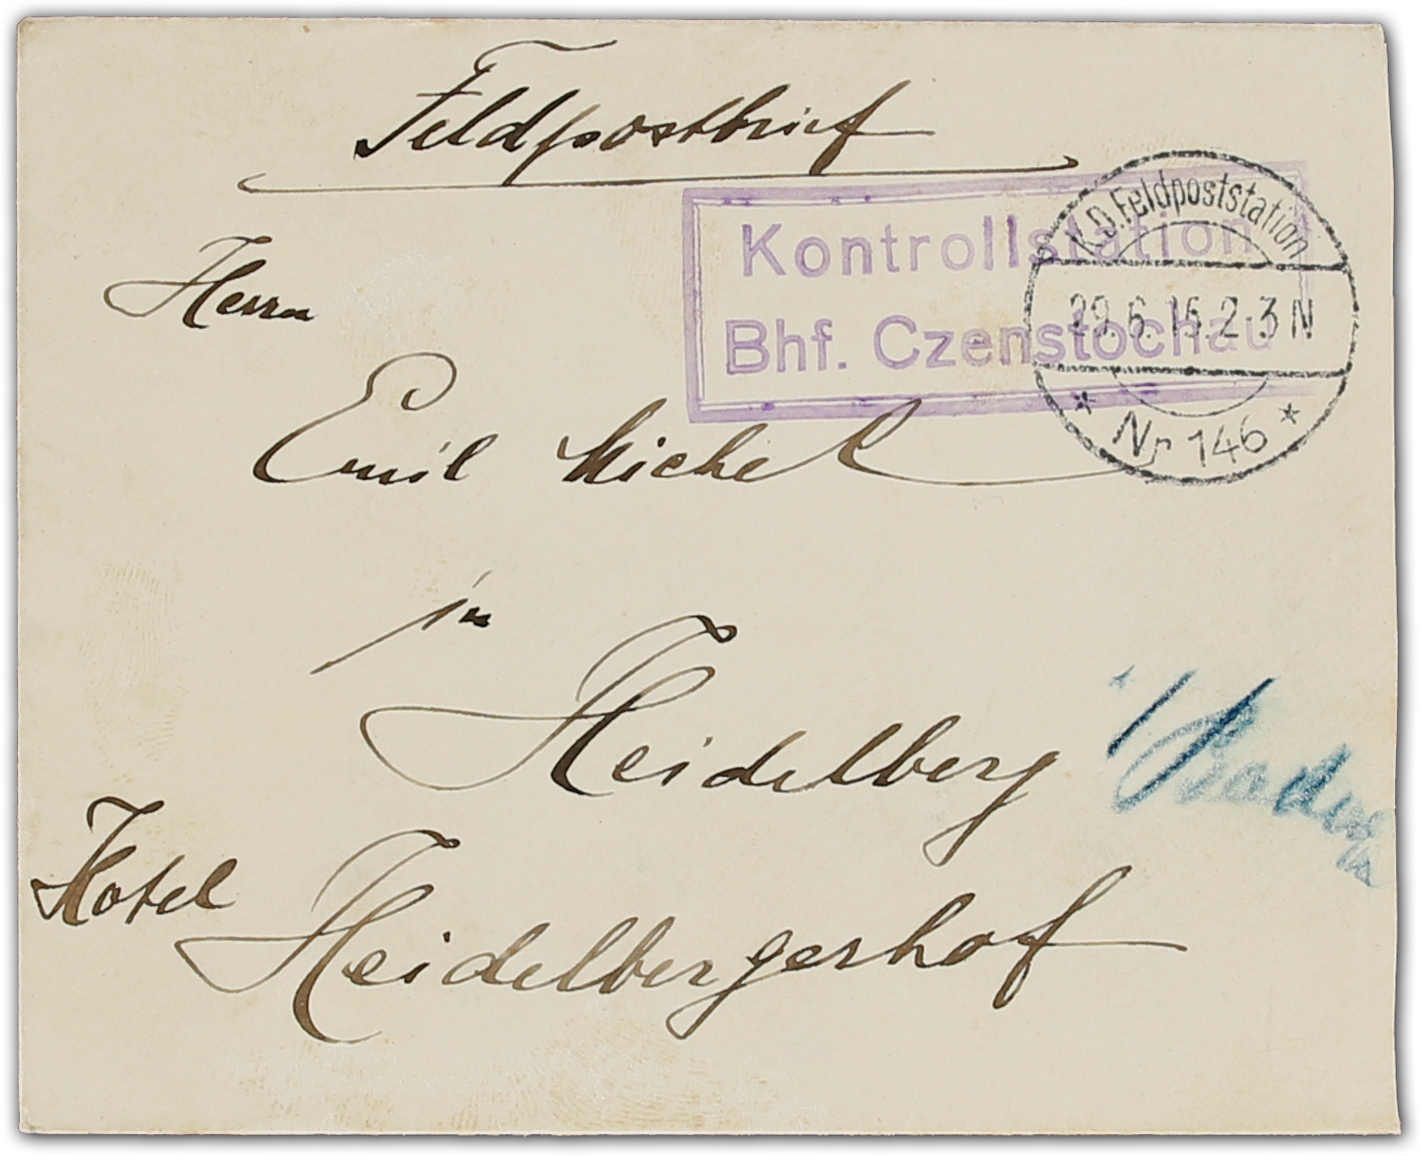 Feldpostbrief
Kontrollstation
Bhf. Czenstochau
K.D. Feldpoststation
29.6.15. 2-3 N
* Nr 146 *
Herrn
Emil Michel
in
Heidelberg
i/ Baden
Hotel Heidelbergerhof